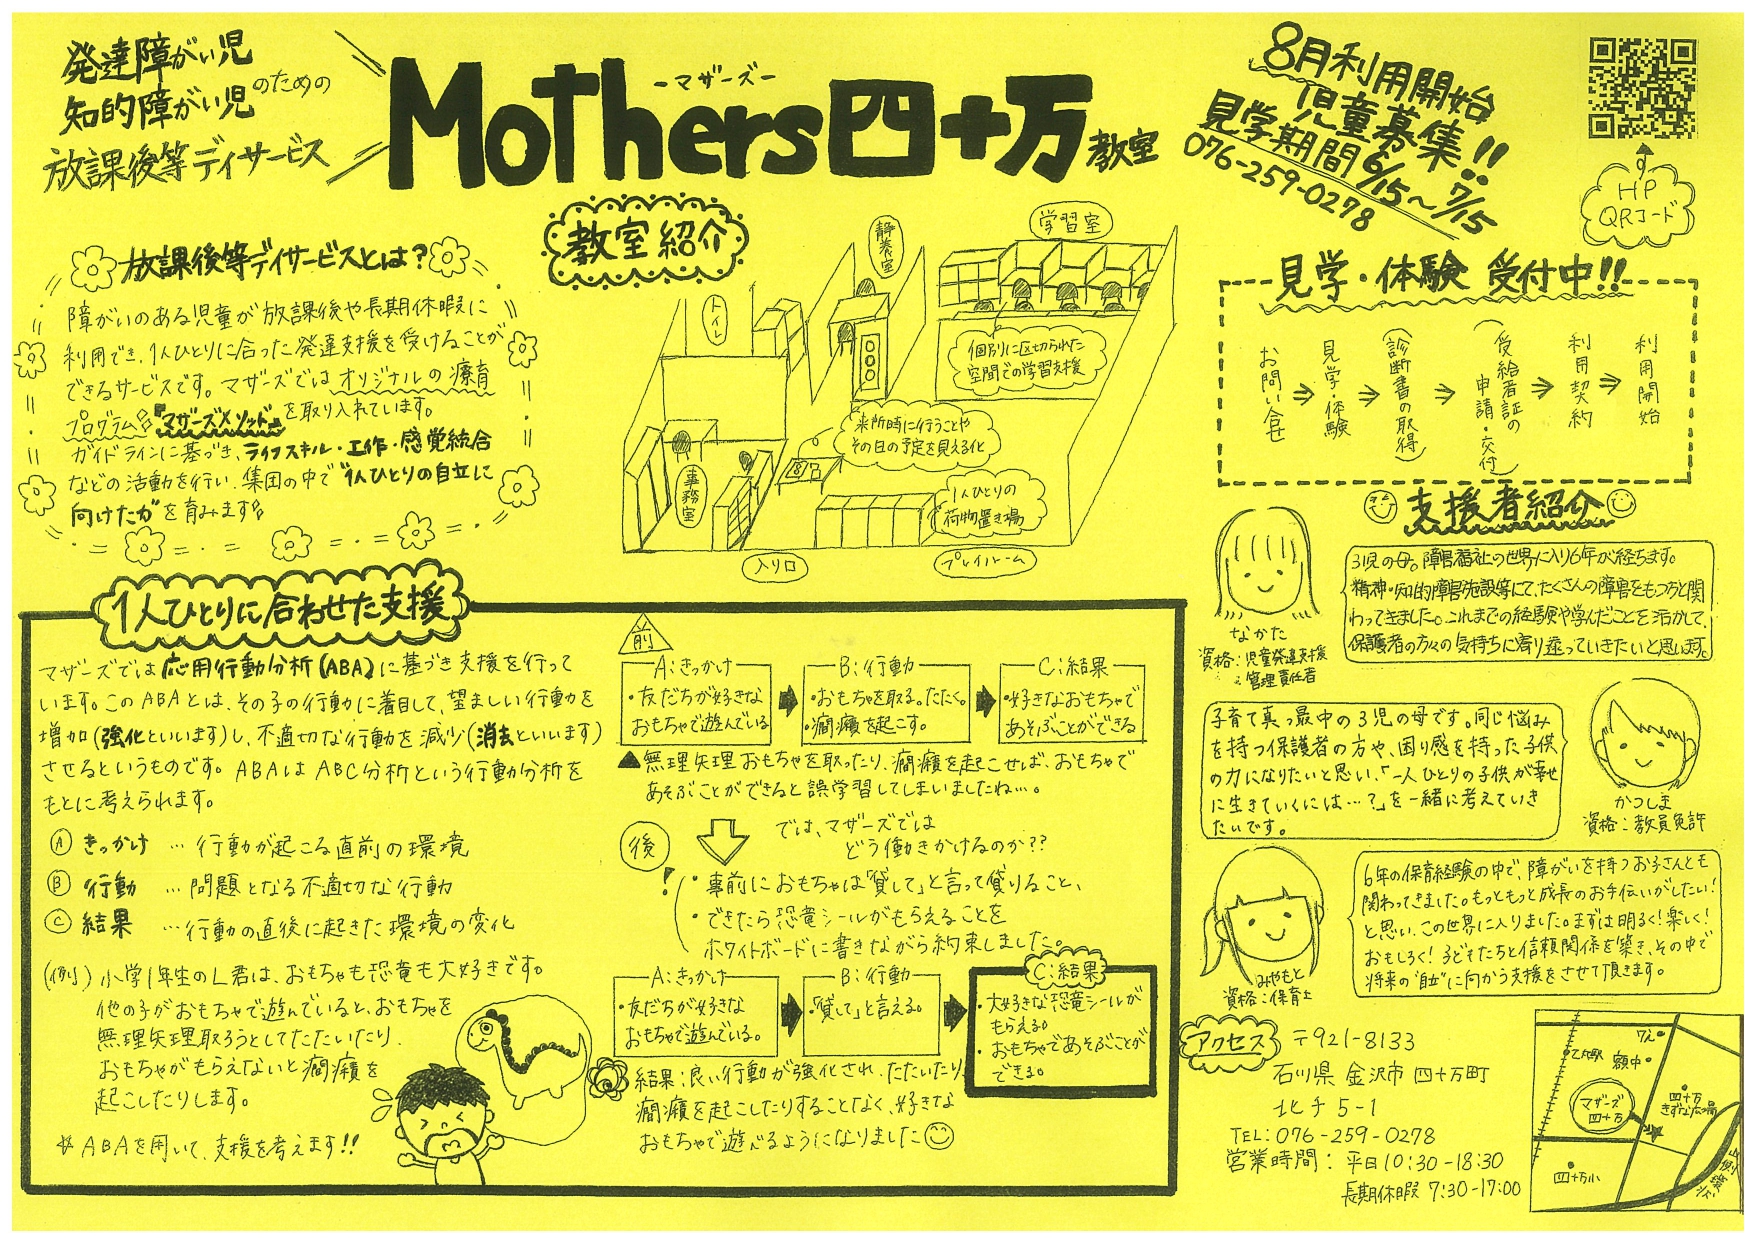 発達障がい児
知的障がい児
のための
放課後等デイサービス
-マザーズ-
Mothers四十万教室
8月利用開始
児童募集!!
見学期間6/15~7/15
076-259-0278
HP
QRコード
放課後等デイサービスとは?
障がいのある児童が放課後や長期休暇に
利用でき、1人ひとりに合った発達支援を受けることが
できるサービスです。マザーズではオリジナルの療育
プログラム『マザーズメソッド』を取り入れています。
ガイドラインに基づき、ライフスキル・工作・感覚統合
などの活動を行い、集団の中で"1人ひとりの自立に
向けた力"を育みます
教室紹介
トイレ
静養室
学習室
個別に区切られた
空間での学習支援
来所時に行うことや
その日の予定を見える化
事務室
1人ひとりの
荷物置き場
入り口
プレイルーム
見学・体験 受付中!!
お問い合せ
⇒
見学・体験
⇒
(診断書の取得)
⇒
(受給者証の
申請・交付)
⇒
利用契約
⇒
利用開始
支援者紹介
3児の母。障害福祉の世界に入り6年が経ちます。
精神・知的障害施設等にて、たくさんの障害をもつ方と関
わってきました。これまでの経験や学んだことを活かして、
保護者の方々の気持ちに寄り添っていきたいと思います。
なかた
資格:児童発達支援
管理責任者
子育て真っ最中の3児の母です。同じ悩み
を持つ保護者の方や、困り感を持った子供
の力になりたいと思い、「一人ひとりの子供が幸せ
に生きていくには…?」を一緒に考えていき
たいです。
かつしま
資格:教員免許
6年の保育経験の中で、障がいを持つお子さんとも
関わってきました。もっともっと成長のお手伝いがしたい!
と思い、この世界に入りました。まずは明るく!楽しく!
おもしろく!子どもたちと信頼関係を築き、その中で
将来の"自立"に向かう支援をさせて頂きます。
みやもと
資格:保育士
1人ひとりに合わせた支援
マザーズでは応用行動分析(ABA)に基づき支援を行って
います。このABAとは、その子の行動に着目して、望ましい行動を
増加(強化といいます)し、不適切な行動を減少(消去といいます)
させるというものです。ABAはABC分析という行動分析を
もとに考えられます。
Ⓐ きっかけ …行動が起こる直前の環境
Ⓑ 行動 …問題となる不適切な行動
Ⓒ 結果 …行動の直後に起きた環境の変化
(例)小学1年生のL君は、おもちゃも恐竜も大好きです。
他の子がおもちゃで遊んでいると、おもちゃを
無理矢理取ろうとしてたたいたり、
おもちゃがもらえないと癇癪を
起こしたりします。
☆ABAを用いて、支援を考えます!!
前
A:きっかけ
・友だちが好きな
おもちゃで遊んでいる
B:行動
・おもちゃを取る。たたく。
・癇癪を起こす。
C:結果
・好きなおもちゃで
あそぶことができる
▲無理矢理おもちゃを取ったり、癇癪を起こせば、おもちゃで
あそぶことができると誤学習してしまいましたね…。
後
では、マザーズでは
どう働きかけるのか??
・事前におもちゃは「貸して」と言って借りること、
・できたら恐竜シールがもらえることを
ホワイトボードに書きながら約束しました。
A:きっかけ
・友だちが好きな
おもちゃで遊んでいる。
B:行動
・「貸して」と言える。
C:結果
・大好きな恐竜シールが
もらえる。
・おもちゃであそぶことが
できる。
結果:良い行動が強化され、たたいたり
癇癪を起こしたりすることなく、好きな
おもちゃで遊べるようになりました
アクセス
〒921-8133
石川県金沢市四十万町
北チ5-1
TEL:076-259-0278
営業時間:平日10:30-18:30
長期休暇 7:30-17:00
乙丸駅
額中
マザーズ
四十万
四十万
きずな広場
四十万小
山側環状